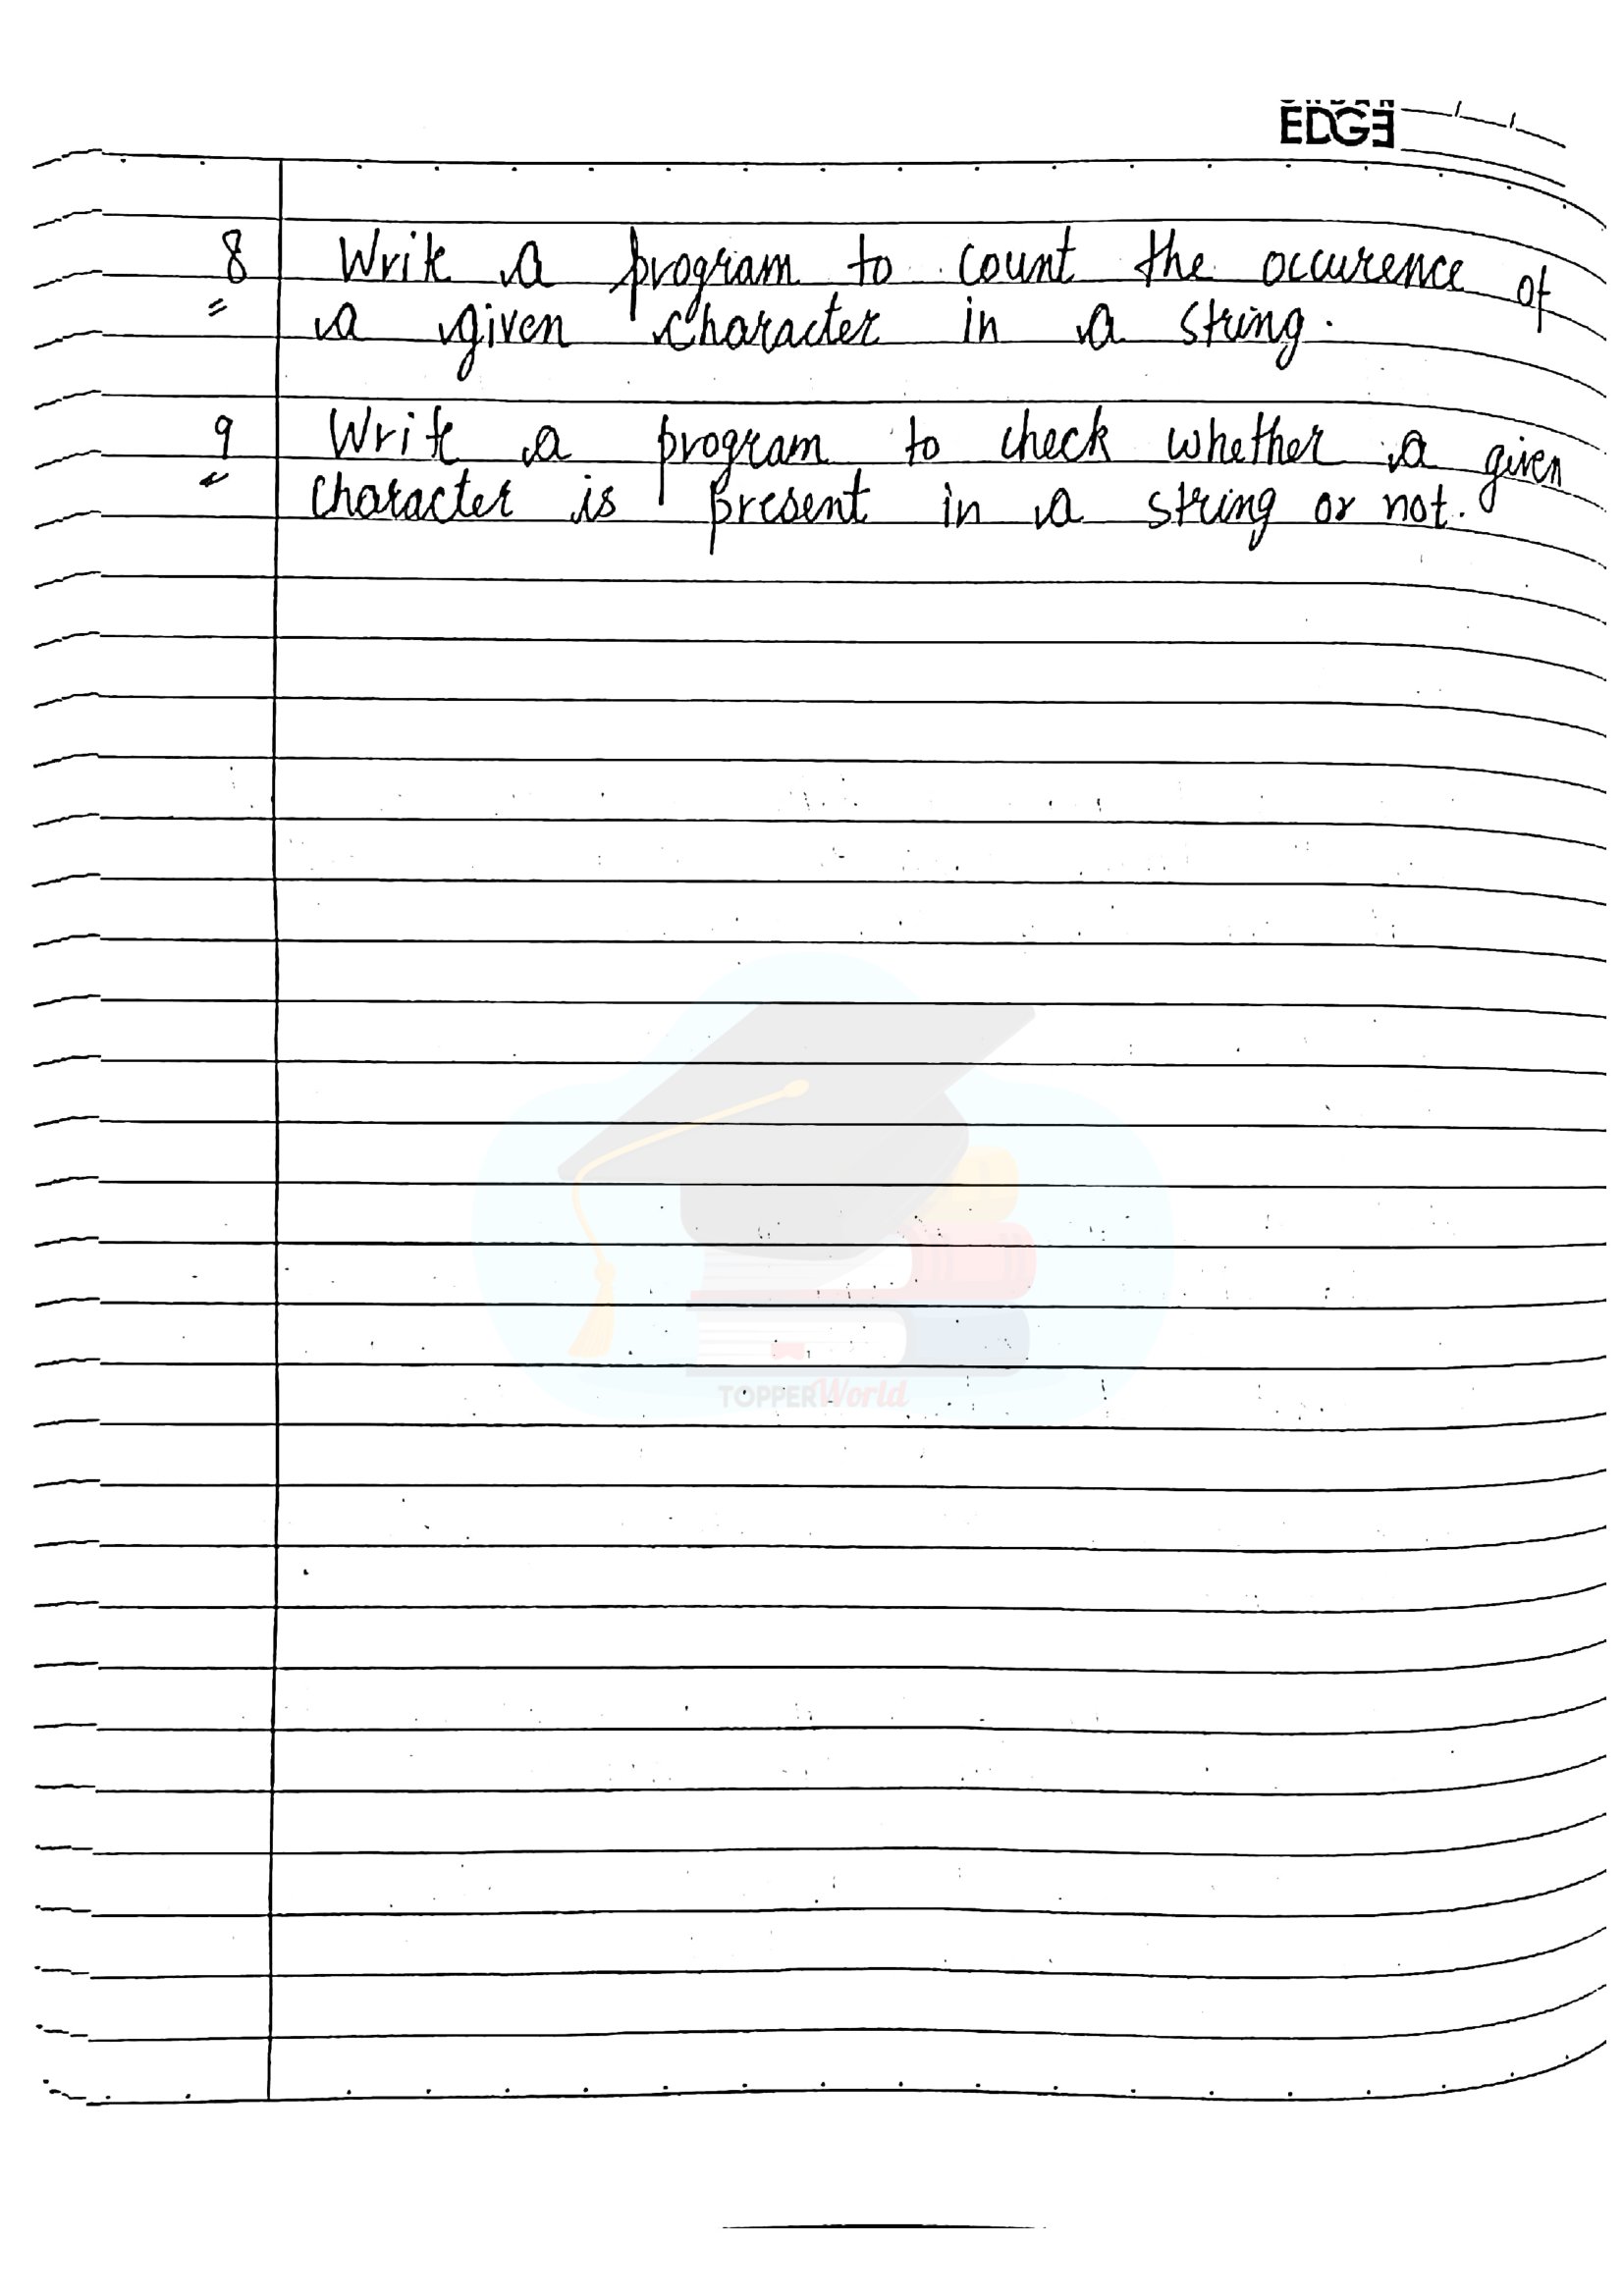 EDGE
8 Write a program to count the occurence of
a given character in a string.
9 Write a program to check whether a given
character is present in a string or not.
TOPPERWorld